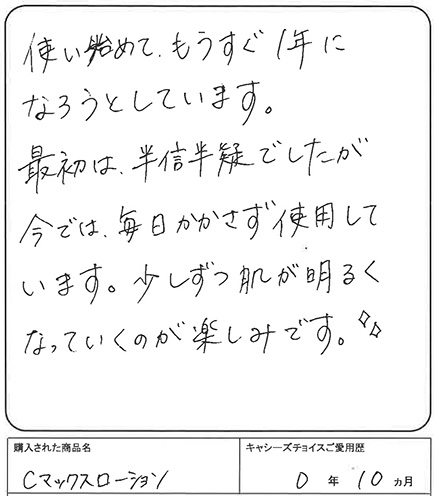 使い始めて、もうすぐ1年に
なろうとしています。
最初は、半信半疑でしたが
今では、毎日かかさず使用して
います。少しずつ肌が明るく
なっていくのが楽しみです。
購入された商品名
キャシーズチョイスご愛用歴
Cマックスローション
0年10ヵ月